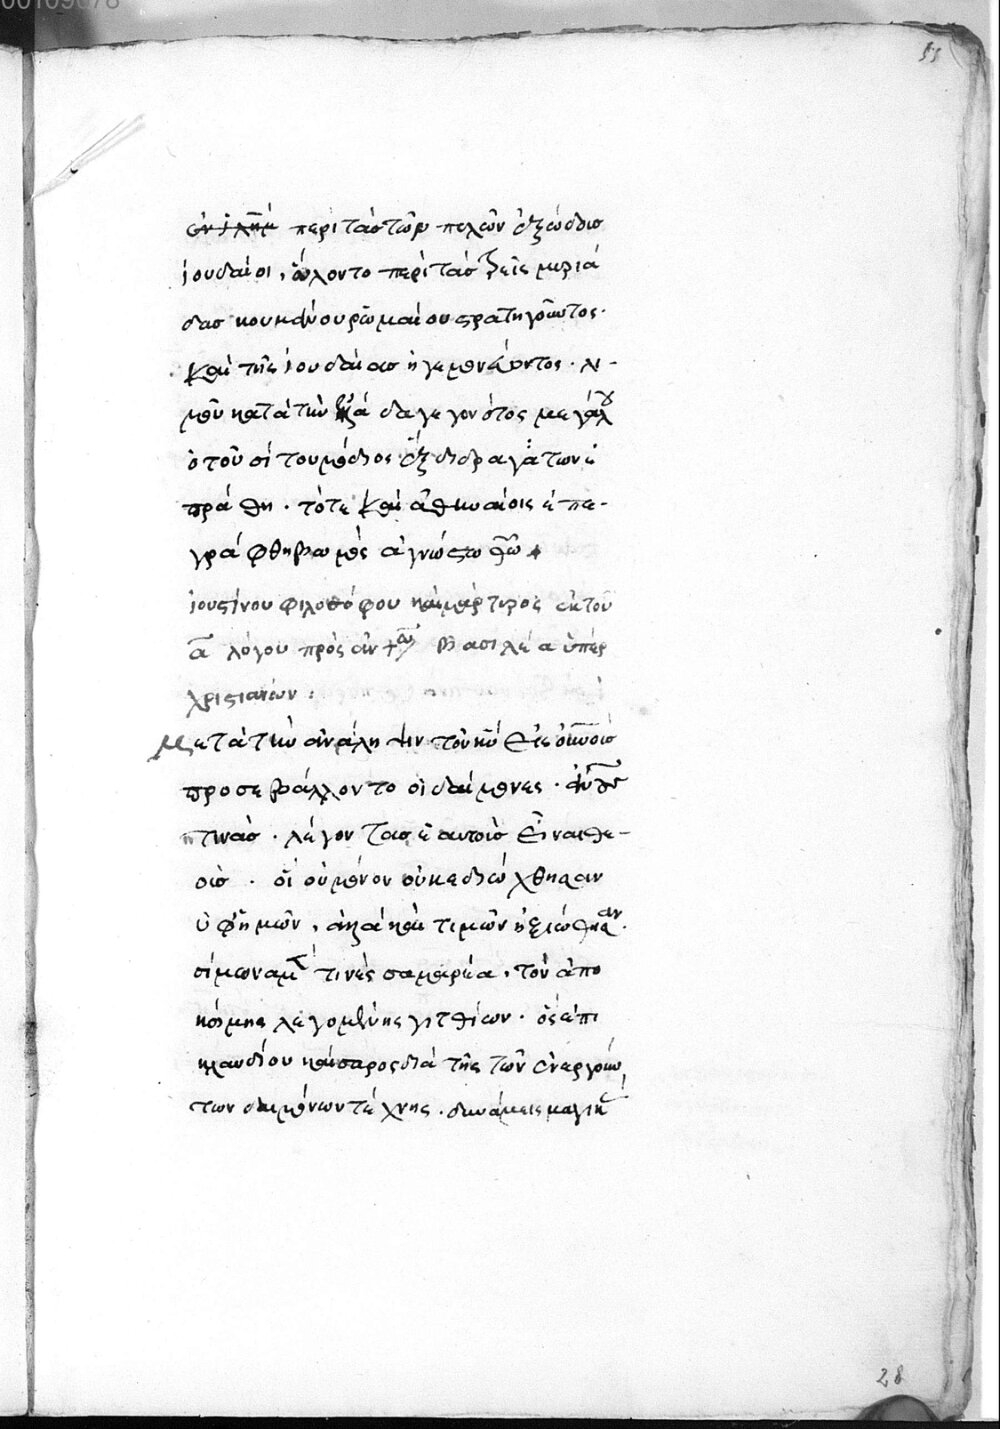 00109678
55
ἐν ἰλῆμ περὶ τὰσ τῶν πυλῶν ἐξώδουσ
ἰουδαίοι, ὤλοντο περὶ τὰσ τρεῖς μυριά
δασ κουμάνου ρωμαίου στρατηγοῦντος·
καὶ τῆς ἰουδαίασ ἡγεμονεύοντος· λι-
μοῦ κατὰ τὴν ἑλλάδα γεγονότος μεγάλου
ὁ τοῦ σίτου μόδιος ἓξ διδράγμων ἐ
πράθη· τότε καὶ ἀθηναίοις ἐπε-
γράφθη βωμὸς ἀγνώστω θεῶ
ἰουστίνου φιλοσόφου καὶ μάρτυρος ἐκ τοῦ
α λόγου πρὸς ἀντων βασιλέα ὑπὲρ
χριστιανῶν:
Μετὰ τὴν ἀνάληψιν τοῦ κυ εἰς οὐνοὺσ
προσεβάλλοντο οἱ δαίμονες· ἀνους
τινὰσ· λέγοντασ ἑαυτοὺσ εἶναι θε-
οὺσ· οἳ οὐ μόνον οὐκ ἐδιώχθησαν
ὑφ' ἡμῶν, ἀλλὰ καὶ τιμῶν ἠξιώθησαν·
σίμωνα μέν τινὲς σαμαρέα, τὸν ἀπὸ
κώμης λεγομένης γιτθίων· ὃς ἐπὶ
κλαυδίου καίσαρος διὰ τῆς τῶν ἐνεργούν
των δαιμόνων τέχνης· δυνάμεις μαγικ
28